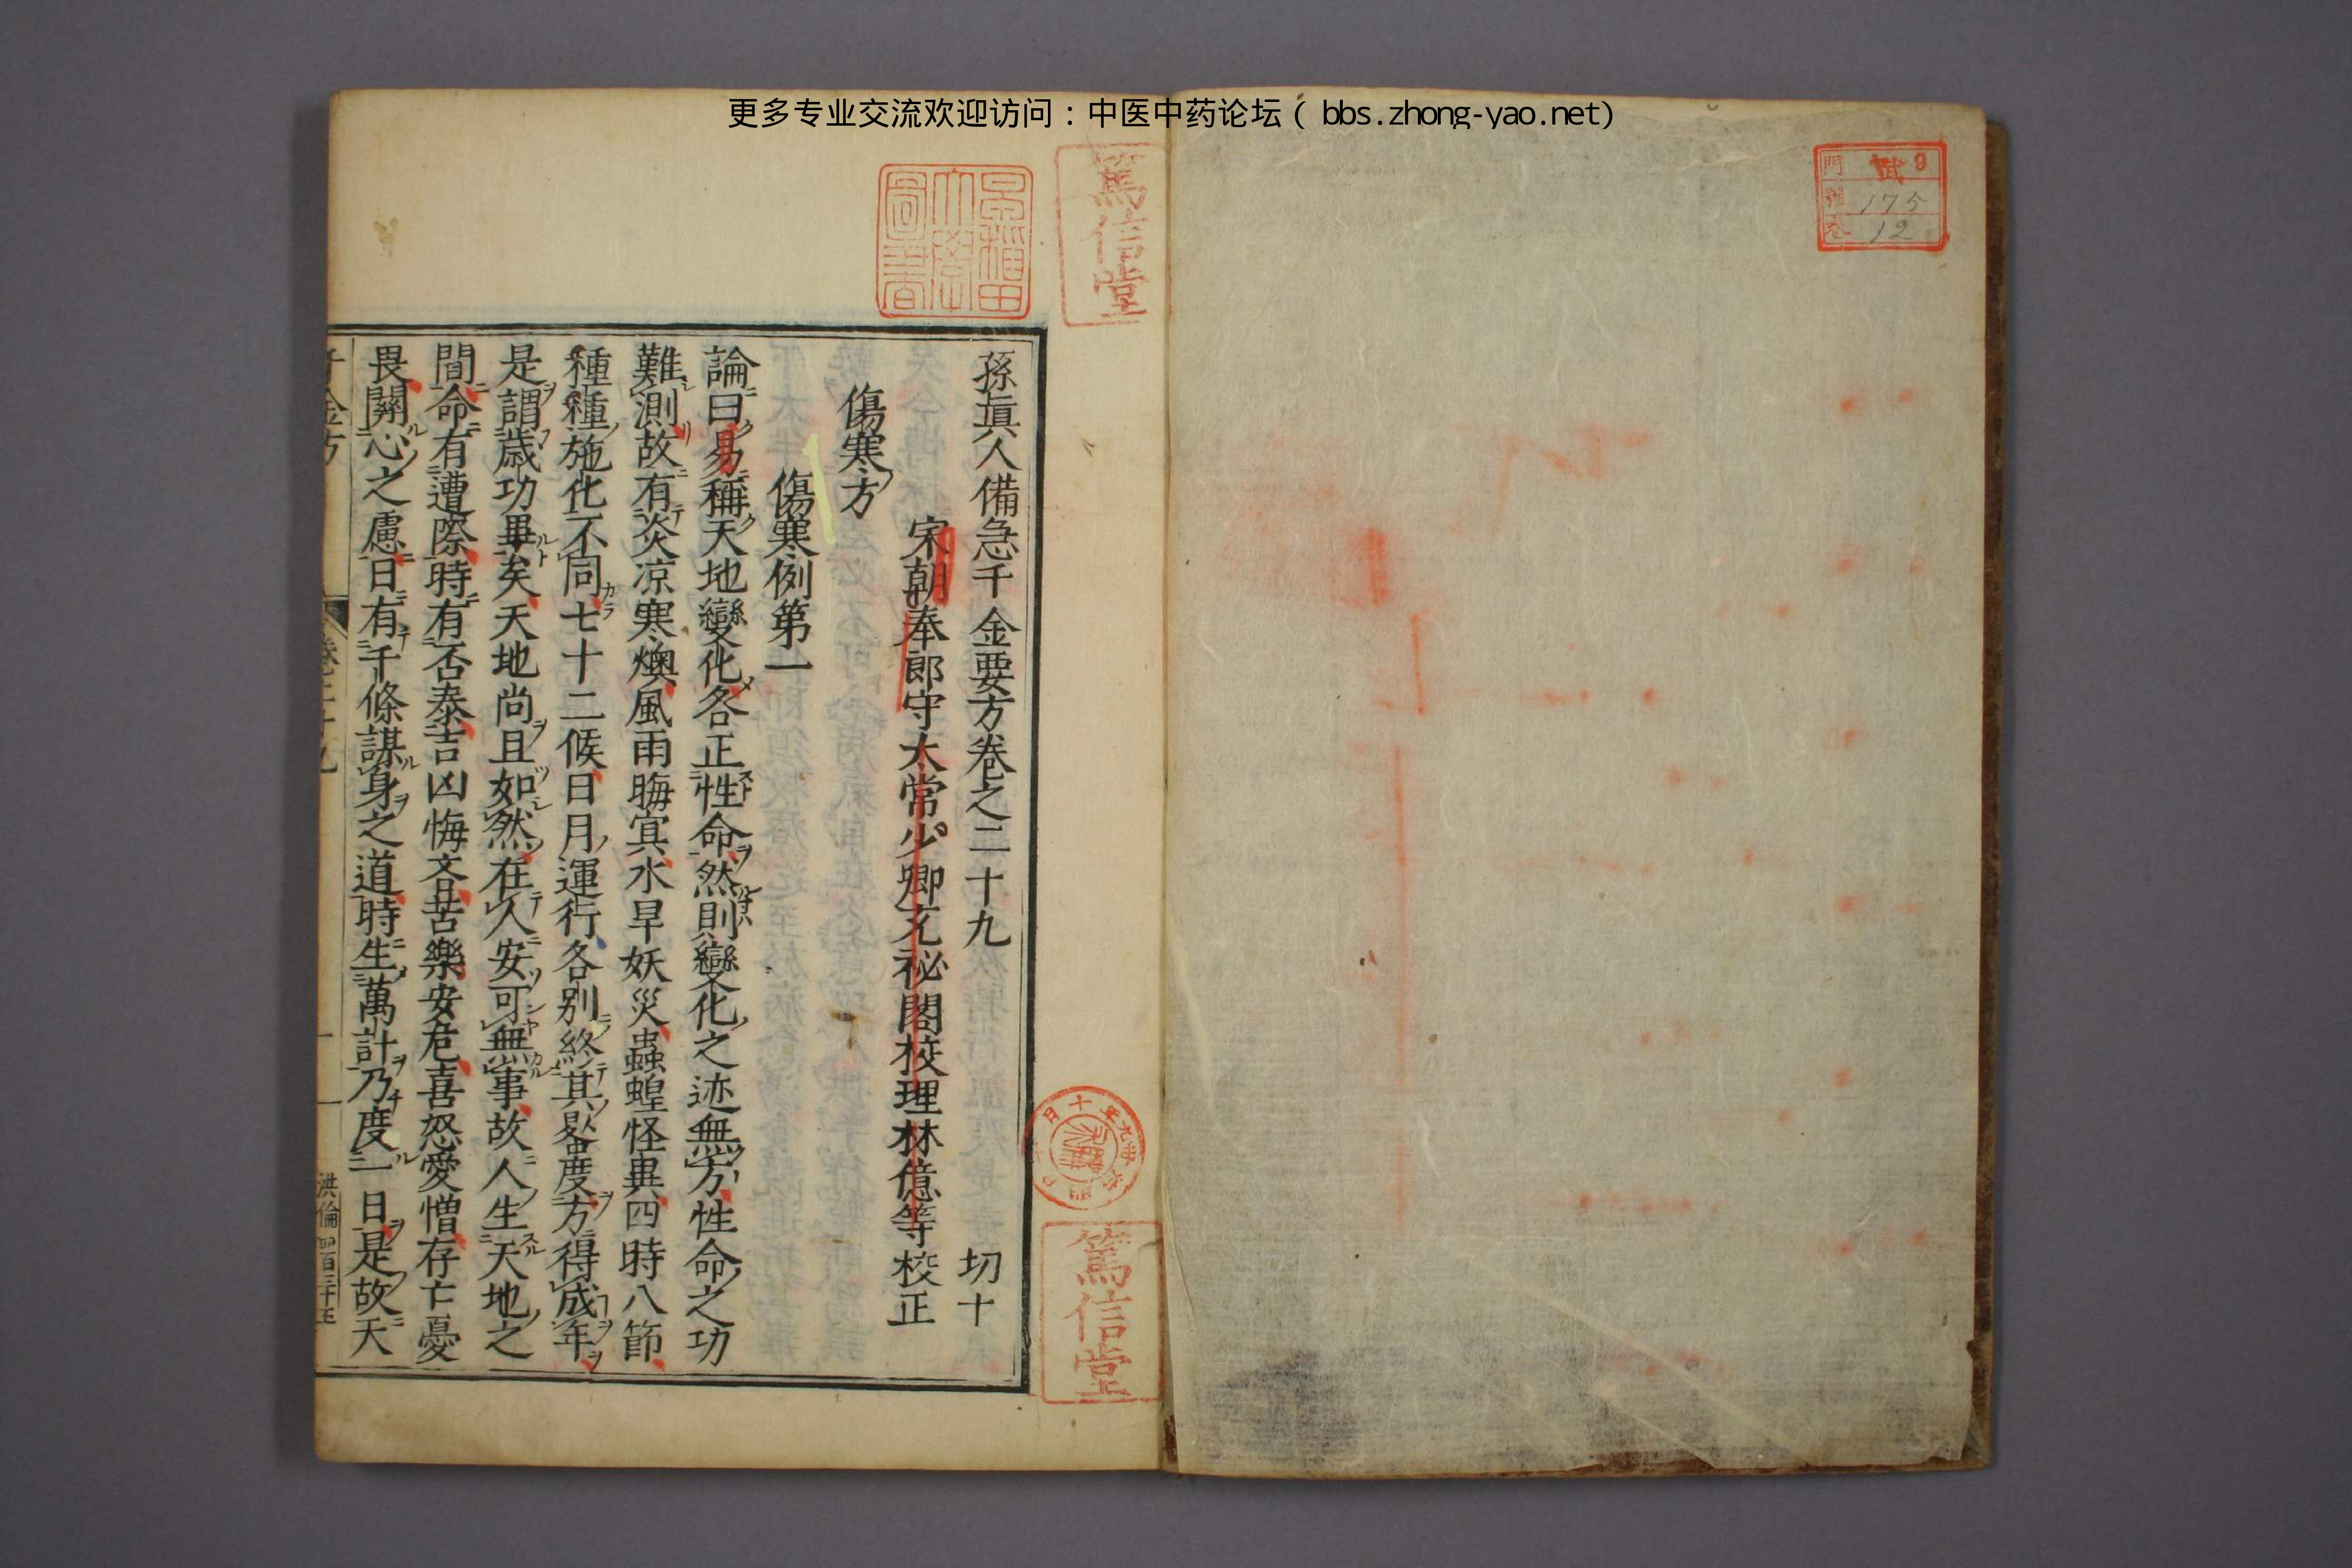 更多专业交流欢迎访问：中医中药论坛（bbs.zhong-yao.net）
門 貳 9
175
12
篤信堂
早稲田大學圖書
孫真人備急千金要方卷之二十九 切十
宋朝奉郎守太常少卿充祕閣校理林億等校正
傷寒方
傷寒例第一
論曰易稱天地變化各正性命然則變化之迹無方性命之功
難測故有炎凉寒燠風雨晦冥水旱妖災蟲蝗怪異四時八節
種種施化不同七十二候日月運行各别終其晷度方得成年
是謂歲功畢矣天地尚且如然在人安可無事故人生天地之
間命有遭際時有否泰吉凶悔吝苦樂安危喜怒愛憎存亡憂
畏關心之慮日有千條謀身之道時生萬計乃度一日是故天
千金方
卷二十九
一
洪倫
篤信堂